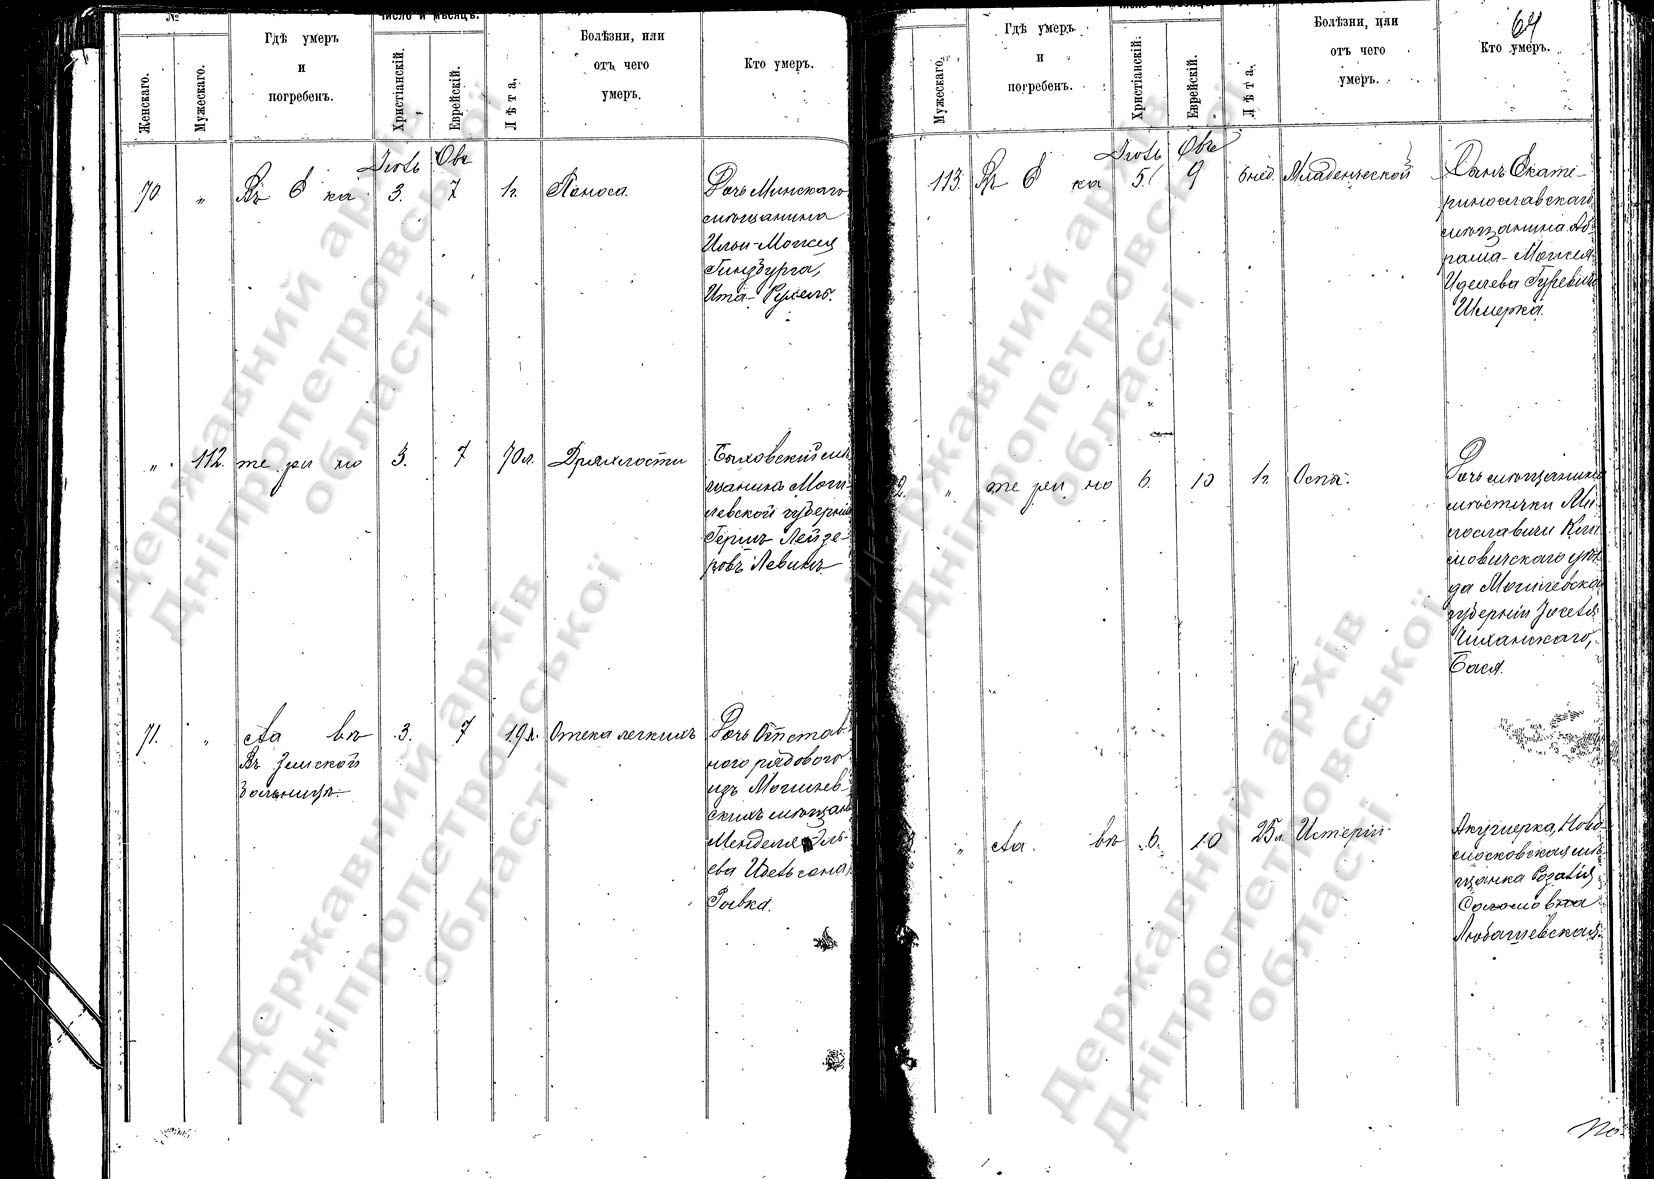 №
число и мѣсяцъ.
Женскаго.
Мужескаго.
Гдѣ умеръ
и
погребенъ.
Христіанскій.
Еврейскій.
Лѣта.
Болѣзни, или
отъ чего
умеръ.
Кто умеръ.
70
"
Въ Е ка
3.
7
1г.
Поноса.
Дочь Минскаго
мѣщанина
Гинзбурга,
Ита-Рухель.
"
112.
те ри но
3.
7
70л.
Дряхлости
Быховский мѣ
щанинъ Моги-
левской губерніи
Гершъ Лейзе-
ровъ Левинъ
71.
"
сла вѣ
3.
7
19л.
Отека легкихъ
Въ Земской
больницѣ.
Дочь Отстав
ного рядового
изъ Могилев-
скихъ мѣщанъ
Менделя Эль-
ева
Ривка.
64
Мужескаго.
Гдѣ умеръ
и
погребенъ.
Христіанскій.
Еврейскій.
Лѣта.
Болѣзни, или
отъ чего
умеръ.
Кто умеръ.
113.
Въ Е ка
5.
9
6 нед
Младенческой
Сынъ Екате-
ринославскаго
мѣщанина Аб-
рама-Мовшея
Гуревича
Шмерка.
2.
"
те ри но
6.
10
1г.
Оспа.
Дочь мѣщанина
мѣстечки Ми-
лославичи Кли-
мовичскаго уѣз-
да Могилевской
губерніи
Бася.
"
сла. вѣ
6.
10
25л.
Истеріи
Акушерка, Ново
московская мѣ-
щанка Розалія
Соломовна
Любашевская.